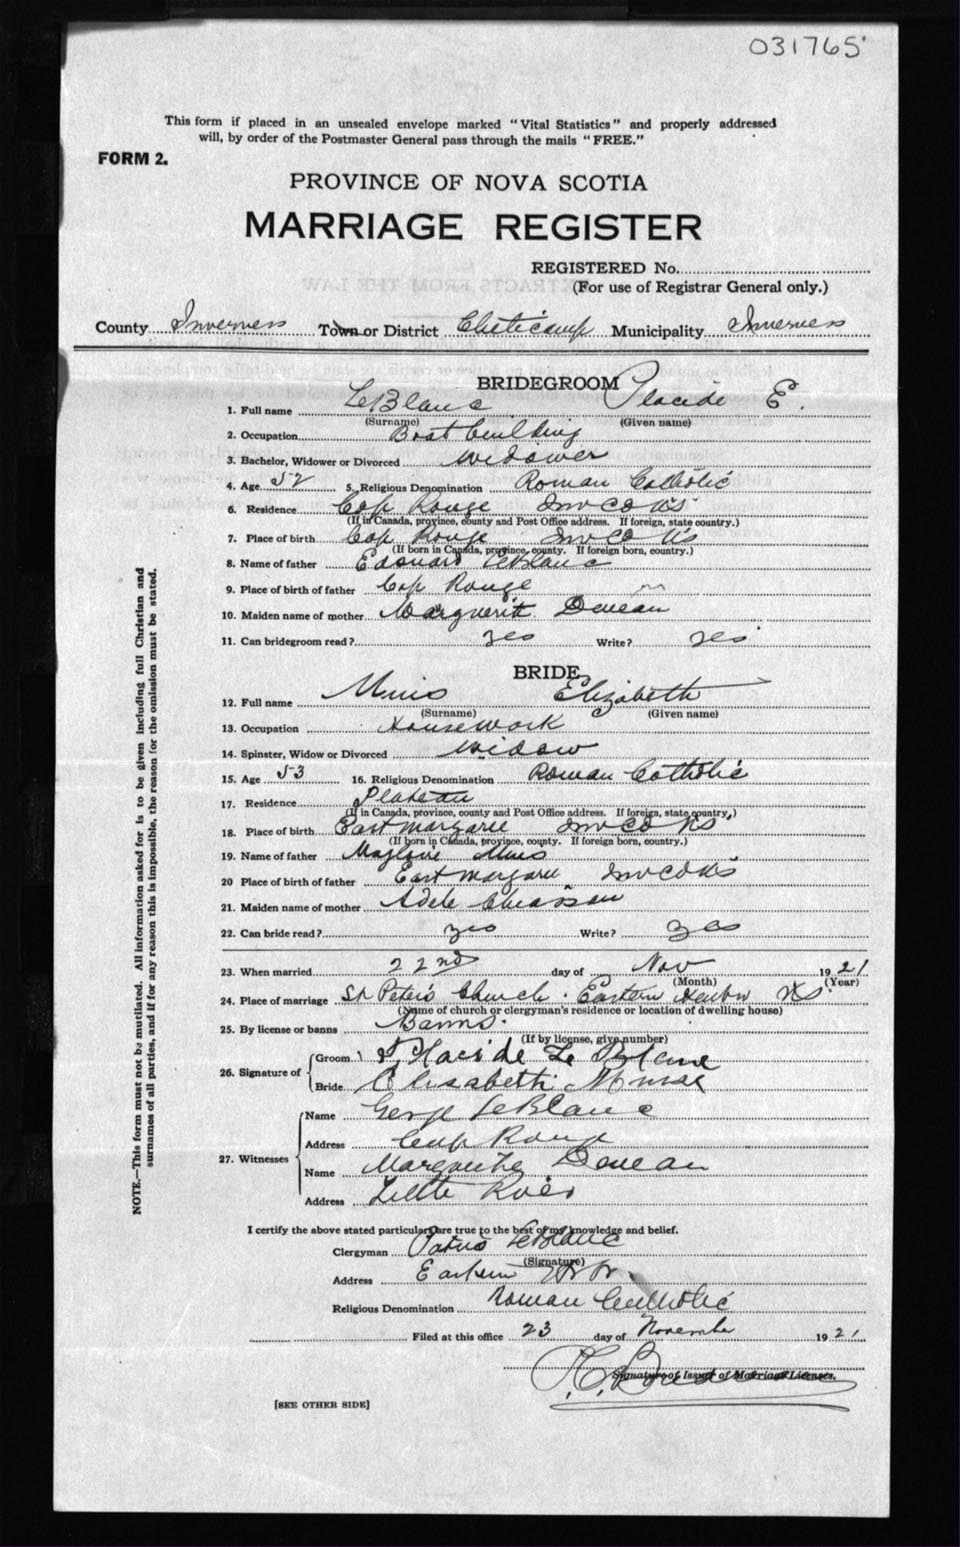 031765
This form if placed in an unsealed envelope marked "Vital Statistics" and properly addressed
will, by order of the Postmaster General pass through the mails "FREE."
FORM 2.
PROVINCE OF NOVA SCOTIA
MARRIAGE REGISTER
REGISTERED No.
(For use of Registrar General only.)
County Inverness Town or District Cheticamp Municipality Inverness
BRIDEGROOM
1. Full name LeBlanc Placide E.
(Surname) (Given name)
2. Occupation Boat building
3. Bachelor, Widower or Divorced Widower
4. Age 52 5. Religious Denomination Roman Catholic
6. Residence Cap Rouge Inv CO NS
(If in Canada, province, county and Post Office address. If foreign, state country.)
7. Place of birth Cap Rouge Inv CO NS
(If born in Canada, province, county. If foreign born, country.)
8. Name of father Edouard LeBlanc
9. Place of birth of father Cap Rouge
10. Maiden name of mother Marguerit Deveau
11. Can bridegroom read? yes Write? yes
BRIDE
12. Full name Muis Elizabeth
(Surname) (Given name)
13. Occupation Housework
14. Spinster, Widow or Divorced Widow
15. Age 53 16. Religious Denomination Roman Catholic
17. Residence Plateau
(If in Canada, province, county and Post Office address. If foreign, state country.)
18. Place of birth East Margaree Inv CO NS
(If born in Canada, province, county. If foreign born, country.)
19. Name of father Magloire Muis
20 Place of birth of father East Margaree Inv CO NS
21. Maiden name of mother Adele Chiasson
22. Can bride read? yes Write? yes
23. When married 22nd day of Nov 1921
(Month) (Year)
24. Place of marriage St Peter's Church. Eastern Harbor NS.
(Name of church or clergyman's residence or location of dwelling house)
25. By license or banns Banns.
(If by license, give number)
26. Signature of Groom Placide Le Blanc
Bride Elisabeth
27. Witnesses Name George LeBlanc
Address Cap Rouge
Name Marguerite Deveau
Address
I certify the above stated particulars are true to the best of my knowledge and belief.
Clergyman LeBlanc
(Signature)
Address Eastern Hr
Religious Denomination Roman Catholic
Filed at this office 23 day of November 1921
Signature of Issuer of Marriage Licenses.
[SEE OTHER SIDE]
NOTE.—This form must not be mutilated. All information asked for is to be given including full Christian and
surnames of all parties, and if for any reason this is impossible, the reason for the omission must be stated.